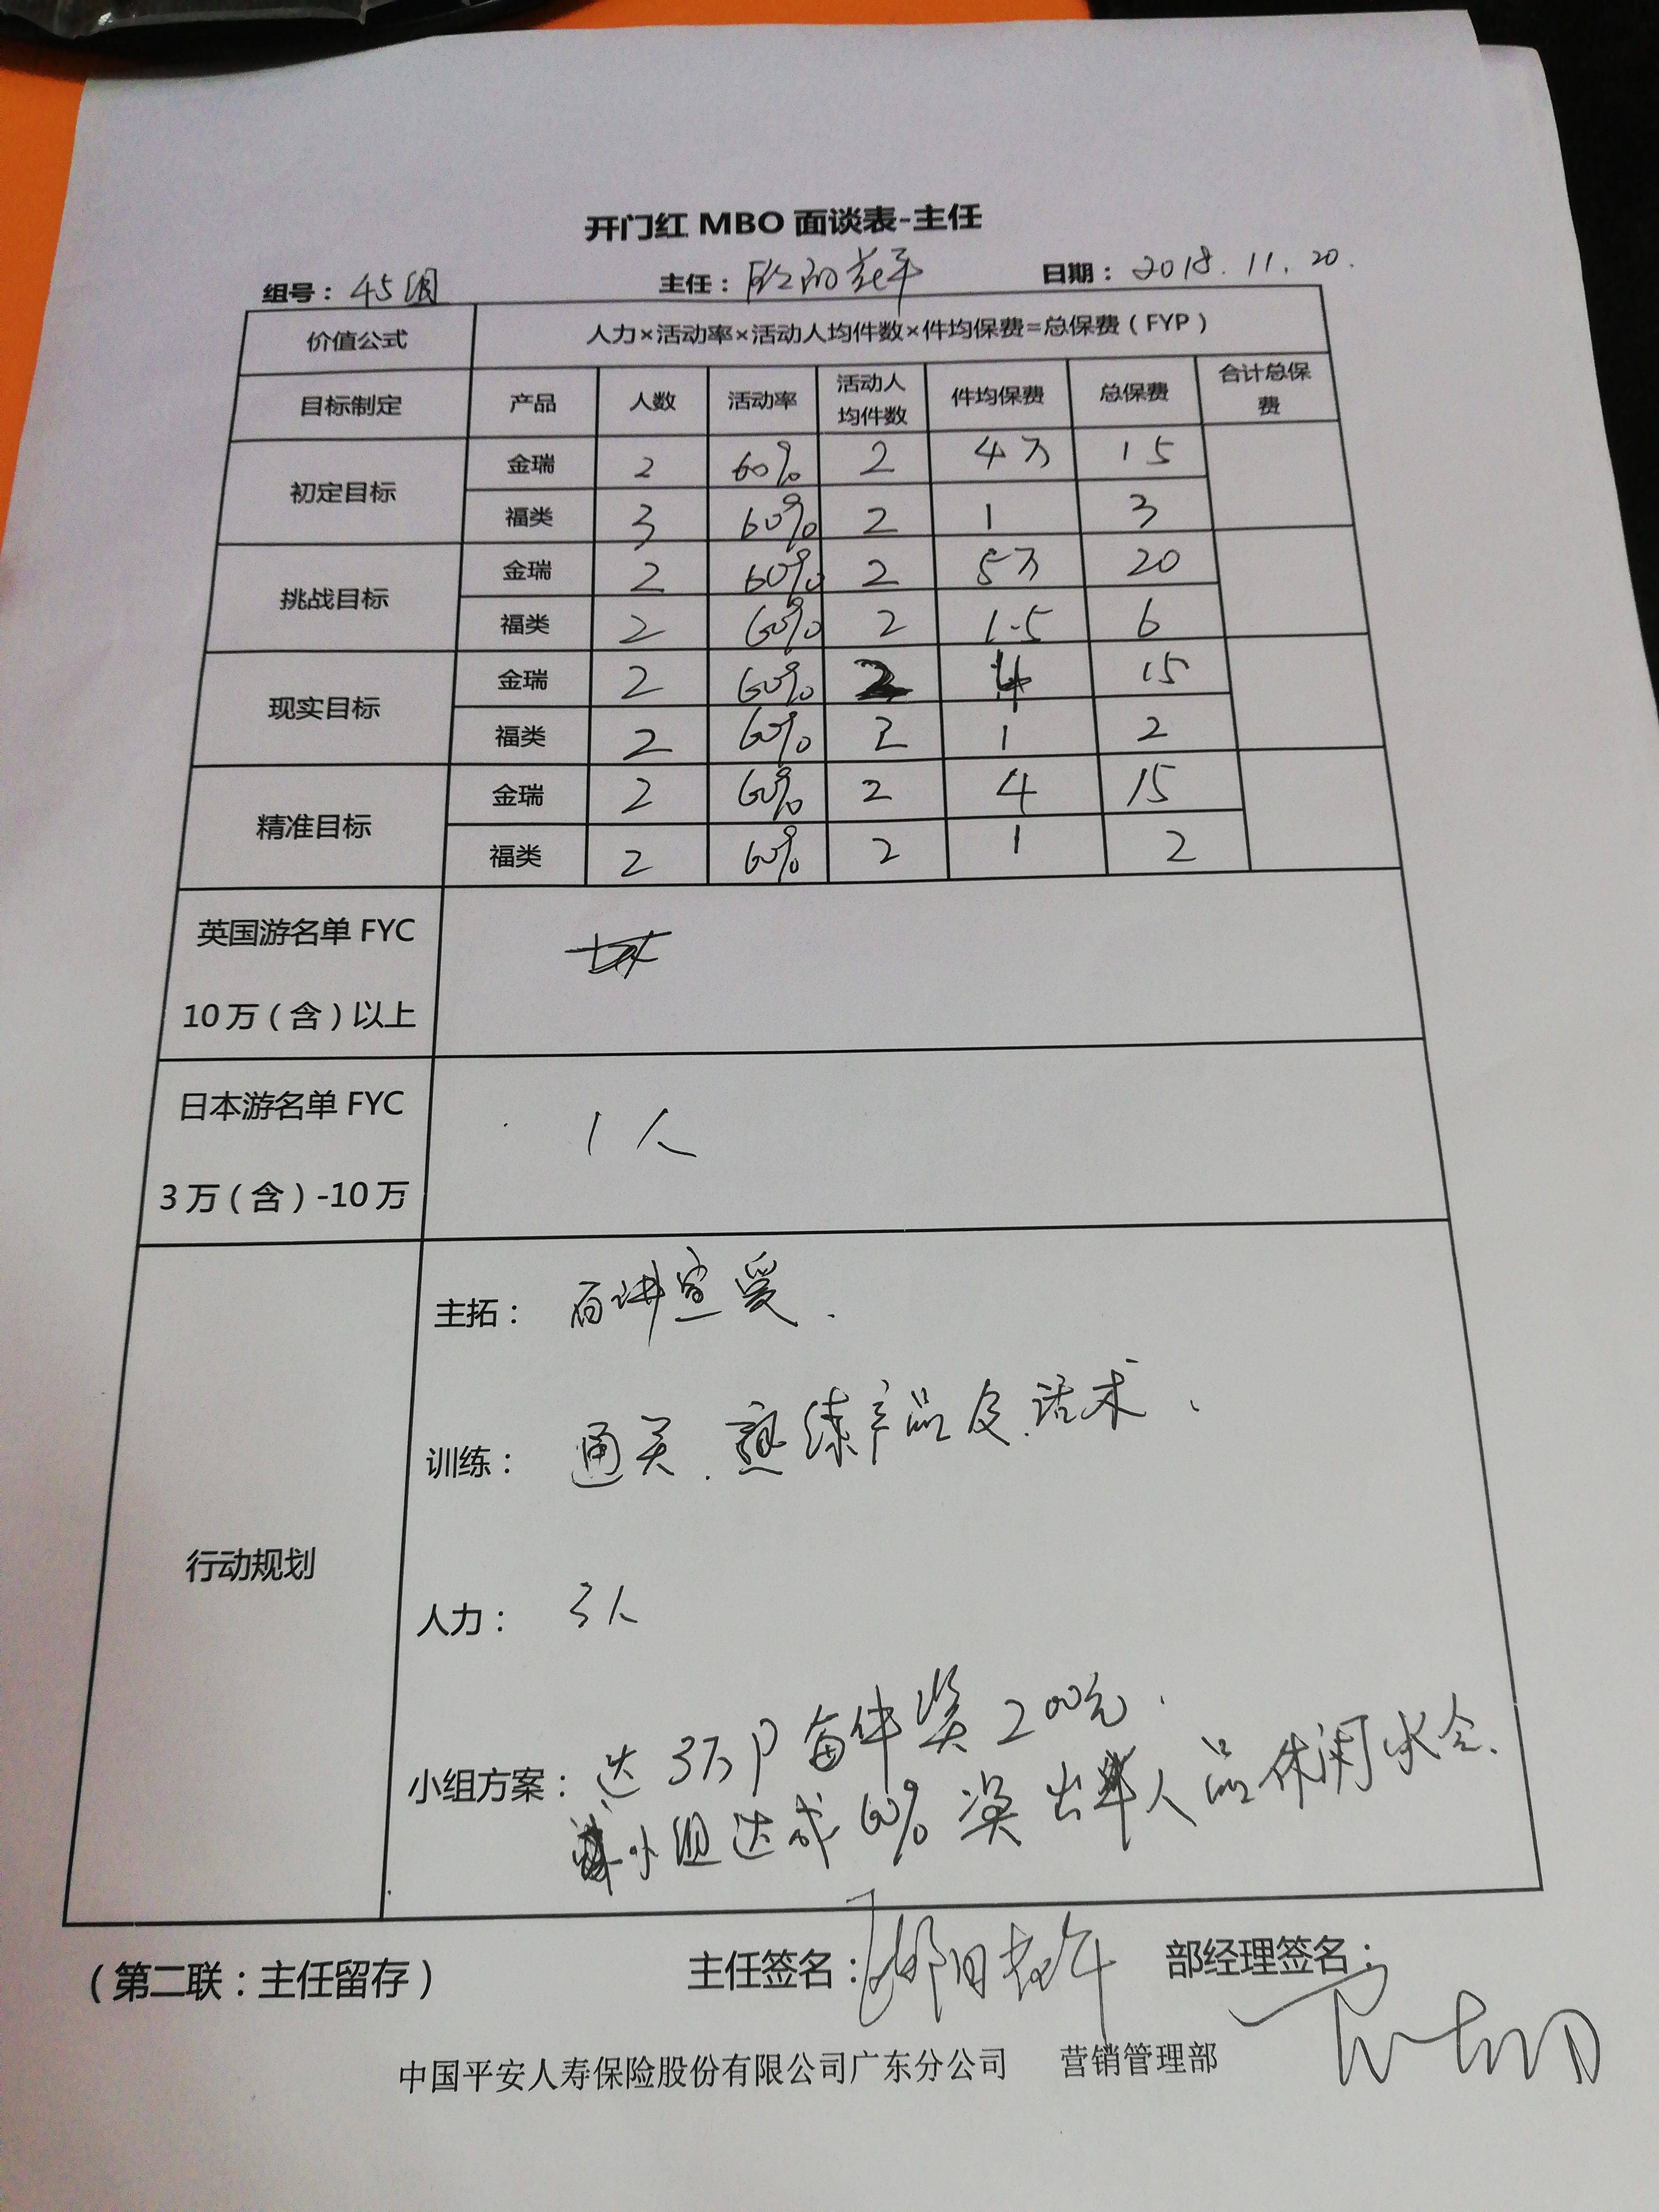 开门红 MBO 面谈表-主任
组号：45组 主任： 日期：2018.11.20.
价值公式 人力×活动率×活动人均件数×件均保费=总保费（FYP）
目标制定 产品 人数 活动率 活动人均件数 件均保费 总保费 合计总保费
初定目标 金瑞 2 60% 2 4万 15
福类 3 60% 2 1 3
挑战目标 金瑞 2 60% 2 5万 20
福类 2 60% 2 1.5 6
现实目标 金瑞 2 60% 2 4 15
福类 2 60% 2 1 2
精准目标 金瑞 2 60% 2 4 15
福类 2 60% 2 1 2
英国游名单 FYC
10万（含）以上
日本游名单 FYC
3万（含）-10万
1人
行动规划
主拓：百讲宣爱.
训练：通关.熟练产品及话术.
人力：3人
小组方案：达3万P每件奖200元.
小组达成60%奖出单人员休闲水会.
（第二联：主任留存） 主任签名： 部经理签名：
中国平安人寿保险股份有限公司广东分公司 营销管理部